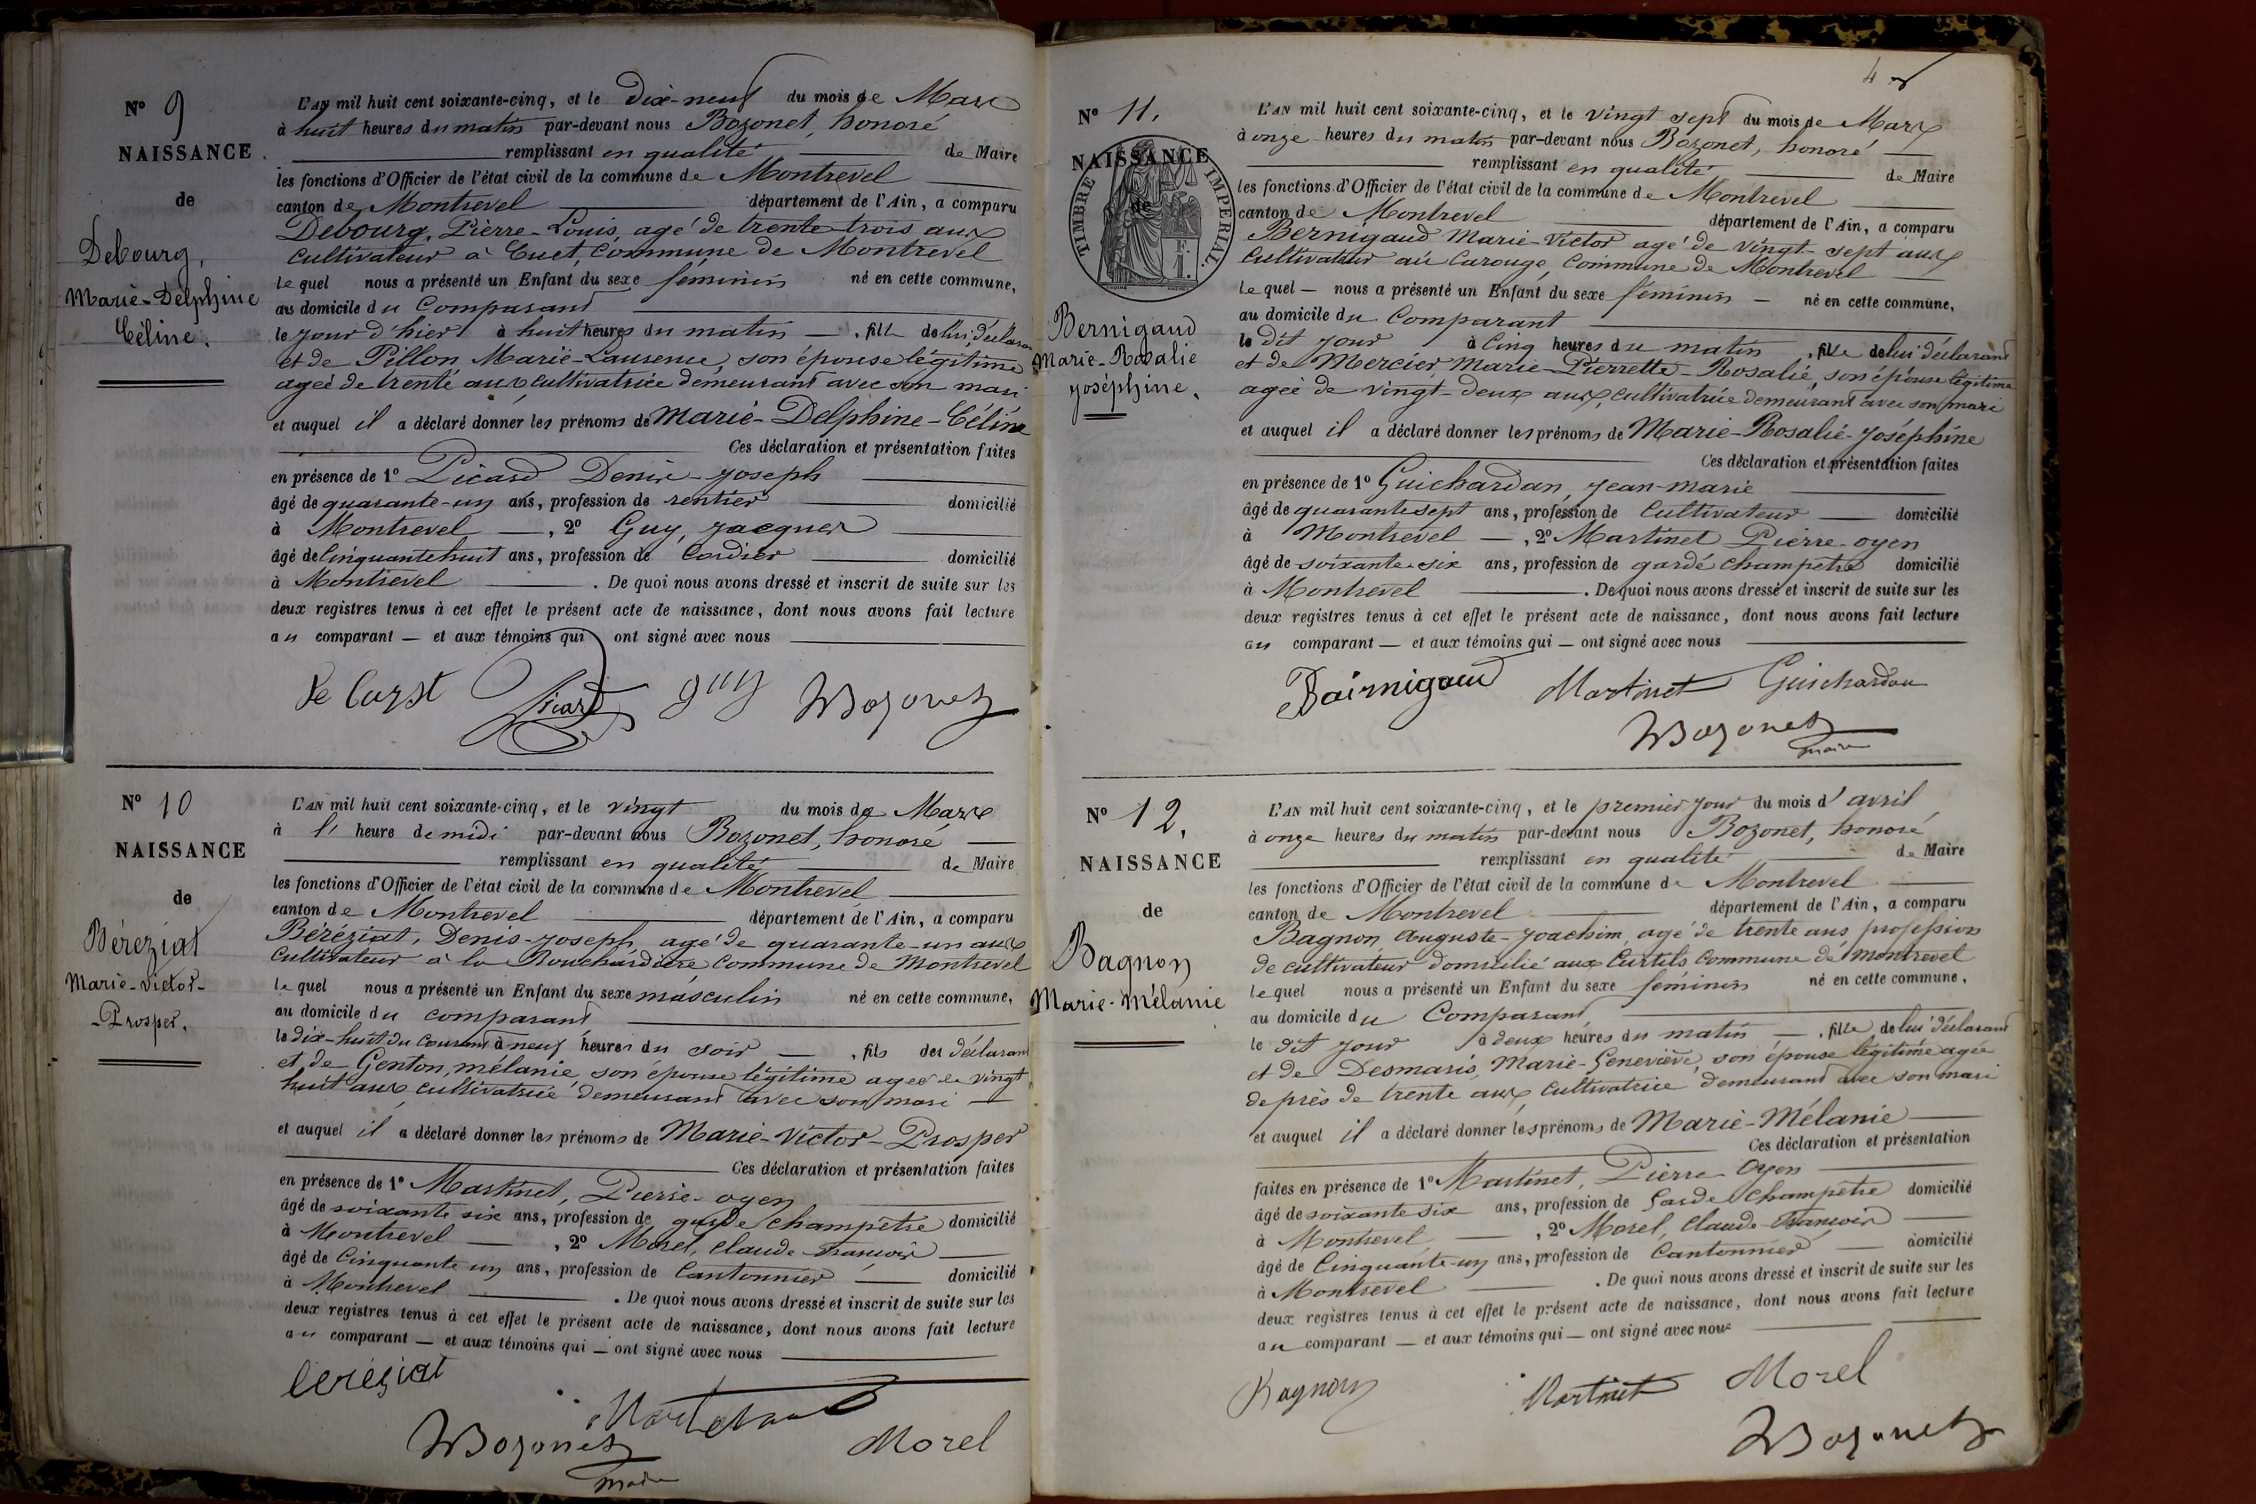 N° 9
NAISSANCE
de
Debourg,
Marie-Delphine
Céline.
L'AN mil huit cent soixante-cinq, et le dix-neuf du mois de Mars
à huit heures du matin par-devant nous Bozonet, honoré
remplissant en qualité de Maire
les fonctions d'Officier de l'état civil de la commune de Montrevel
canton de Montrevel département de l'Ain, a comparu
Debourg, Pierre-Louis, agé de trente-trois ans
cultivateur à Cuet, Commune de Montrevel
lequel nous a présenté un Enfant du sexe féminin né en cette commune,
au domicile du Comparant
le jour d'hier à huit heures du matin, fille de lui déclarant
et de Pillon Marie-Laurence, son épouse légitime
ageé de trente ans, cultivatrice demeurant avec son mari
et auquel il a déclaré donner les prénoms de Marie-Delphine-Céline
Ces déclaration et présentation faites
en présence de 1° Picard Denis-Joseph
âgé de quarante-un ans, profession de rentier domicilié
à Montrevel, 2° Guy, Jacques
âgé de Cinquante huit ans, profession de Cordier domicilié
à Montrevel. De quoi nous avons dressé et inscrit de suite sur les
deux registres tenus à cet effet le présent acte de naissance, dont nous avons fait lecture
au comparant — et aux témoins qui ont signé avec nous
Picard guy Bozonet
N° 10
NAISSANCE
de
Béréziat
Marie-Victor-
-Prosper.
L'AN mil huit cent soixante-cinq, et le vingt du mois de Mars
à l' heure de midi par-devant nous Bozonet, honoré
remplissant en qualité de Maire
les fonctions d'Officier de l'état civil de la commune de Montrevel
canton de Montrevel département de l'Ain, a comparu
Béréziat, Denis-Joseph agé de quarante-un ans
cultivateur à la Rouchardière Commune de Montrevel
lequel nous a présenté un Enfant du sexe masculin né en cette commune,
au domicile du comparant
le dix-huit du courant à neuf heures du soir —, fils des déclarant
et de Genton, mélanie son épouse légitime ageé de vingt
huit ans, cultivatrice demeurant avec son mari
et auquel il a déclaré donner les prénoms de Marie-Victor-Prosper
Ces déclaration et présentation faites
en présence de 1° Martinet, Pierre-oyen
âgé de soixante six ans, profession de garde champêtre domicilié
à Montrevel, 2° Morel, Claude-François
âgé de Cinquante un ans, profession de Cantonnier domicilié
à Montrevel. De quoi nous avons dressé et inscrit de suite sur les
deux registres tenus à cet effet le présent acte de naissance, dont nous avons fait lecture
au comparant — et aux témoins qui — ont signé avec nous
Béréziat
Bozonet Morel
maire
4
N° 11.
NAISSANCE
de
TIMBRE IMPERIAL.
1 F.
Bernigaud
Marie-Rosalie
Joséphine.
L'AN mil huit cent soixante-cinq, et le vingt sept du mois de Mars
à onze heures du matin par-devant nous Bozonet, honoré
remplissant en qualité de Maire
les fonctions d'Officier de l'état civil de la commune de Montrevel
canton de Montrevel département de l'Ain, a comparu
Bernigaud Marie-Victor agé de vingt-sept ans
Cultivateur au Carouge, Commune de Montrevel
lequel — nous a présenté un Enfant du sexe féminin — né en cette commune,
au domicile du Comparant
le dit jour à Cinq heures du matin, fille de lui déclarant
et de Mercier, Marie-Pierrette-Rosalie, son épouse légitime
ageé de vingt-deux ans, cultivatrice demeurant avec son mari
et auquel il a déclaré donner les prénoms de Marie-Rosalie-Joséphine
Ces déclaration et présentation faites
en présence de 1° Guichardan, Jean-Marie
âgé de quarante sept ans, profession de Cultivateur domicilié
à Montrevel —, 2° Martinet Pierre-oyen
âgé de soixante-six ans, profession de garde champêtre domicilié
à Montrevel. De quoi nous avons dressé et inscrit de suite sur les
deux registres tenus à cet effet le présent acte de naissance, dont nous avons fait lecture
au comparant — et aux témoins qui — ont signé avec nous
Bairnigaud Martinet Guichardan
Bozonet
maire
N° 12.
NAISSANCE
de
Bagnon
Marie-Mélanie
L'AN mil huit cent soixante-cinq, et le premier jour du mois d'avril
à onze heures du matin par-devant nous Bozonet, honoré
remplissant en qualité de Maire
les fonctions d'Officier de l'état civil de la commune de Montrevel
canton de Montrevel département de l'Ain, a comparu
Bagnon, auguste-Joachim, agé de trente ans profession
de cultivateur domicilié aux Curtils Commune de Montrevel
lequel nous a présenté un Enfant du sexe féminin né en cette commune,
au domicile du Comparant
le dit jour à deux heures du matin —, fille de lui déclarant
et de Desmaris, Marie-Geneviève, son épouse légitime agée
de près de trente ans, Cultivatrice demeurant avec son mari
et auquel il a déclaré donner les prénoms de Marie-Mélanie
Ces déclaration et présentation
faites en présence de 1° Martinet, Pierre-Oyen
âgé de soixante six ans, profession de Garde champêtre domicilié
à Montrevel, 2° Morel, Claude-François
âgé de Cinquante-un ans, profession de Cantonnier domicilié
à Montrevel. De quoi nous avons dressé et inscrit de suite sur les
deux registres tenus à cet effet le présent acte de naissance, dont nous avons fait lecture
au comparant — et aux témoins qui — ont signé avec nous
Bagnon Martinet Morel
Bozonet